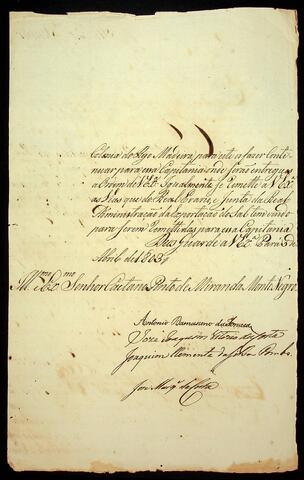 Colonia do Rego Madeira, para este a fazer conti
nuar para essa Capitania onde serão entregues
a Ordem de V. Exª. Igualmente se remette a V. Exª
as Vias que do Real Erario, e Junta da Real
Administração da Exportação do Sal tem vindo
para serem remettidas para essa Capitania
Deus guarde a V. Exª. Pará 5 de
Abril de 1803,,
Illmo. e Exmo. Senhor Caetano Pinto de Miranda Monte Negro
Antonio da Fonseca
Joze Joaquim da Costa
Joaquim Clemente da Silva Pombo
Joze da Costa